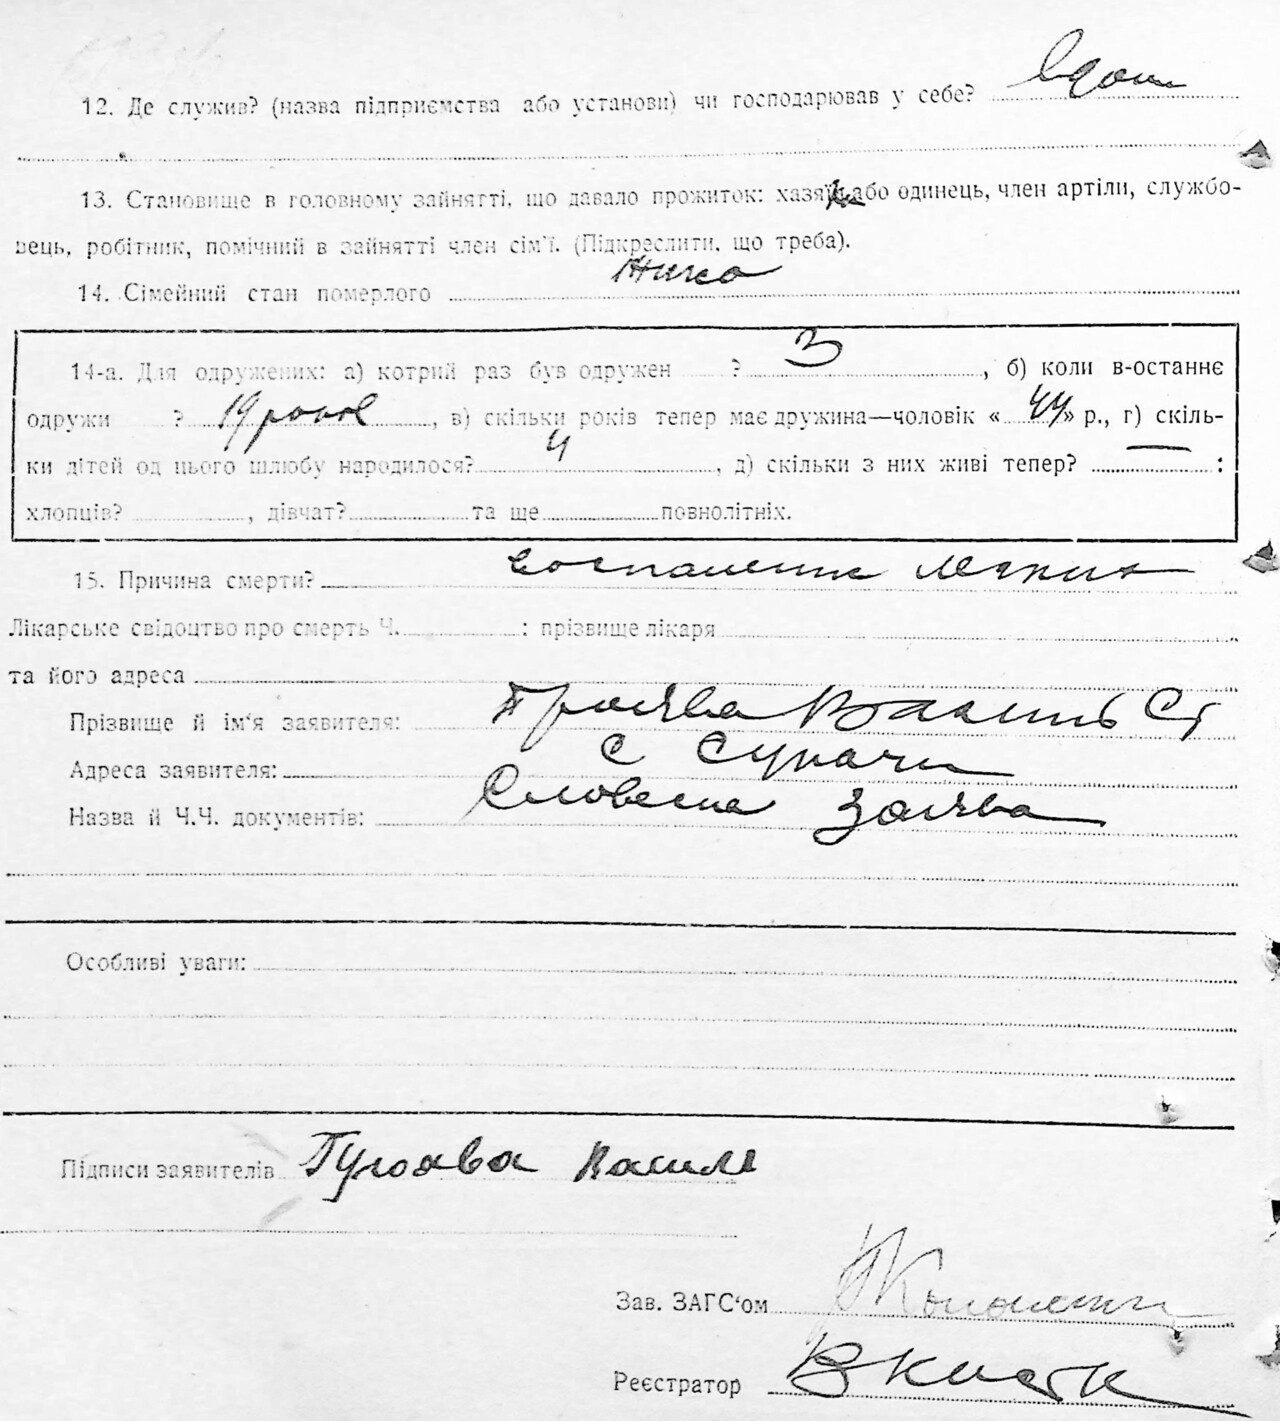 12. Де служив? (назва підприємства або установи) чи господарював у себе? Вдома
13. Становище в головному зайнятті, що давало прожиток: хазяїн або одинець, член артіли, службо-
вець, робітник, помічний в зайнятті член сім'ї. (Підкреслити, що треба).
14. Сімейний стан померлого
14-а. Для одружених: а) котрий раз був одружен ? 3, б) коли в-останнє
одружи ? 19 років, в) скільки років тепер має дружина—чоловік « 44 » р., г) скіль-
ки дітей од цього шлюбу народилося? 4, д) скільки з них живі тепер? — :
хлопців? , дівчат? та ще повнолітніх.
15. Причина смерти? воспаление легких
Лікарське свідоцтво про смерть Ч. : прізвище лікаря
та його адреса
Прізвище й ім'я заявителя: Василь
Адреса заявителя: с
Назва й Ч.Ч. документів: Словесна заява
Особливі уваги:
Підписи заявителів Василь
Зав. ЗАГС'ом
Реєстратор